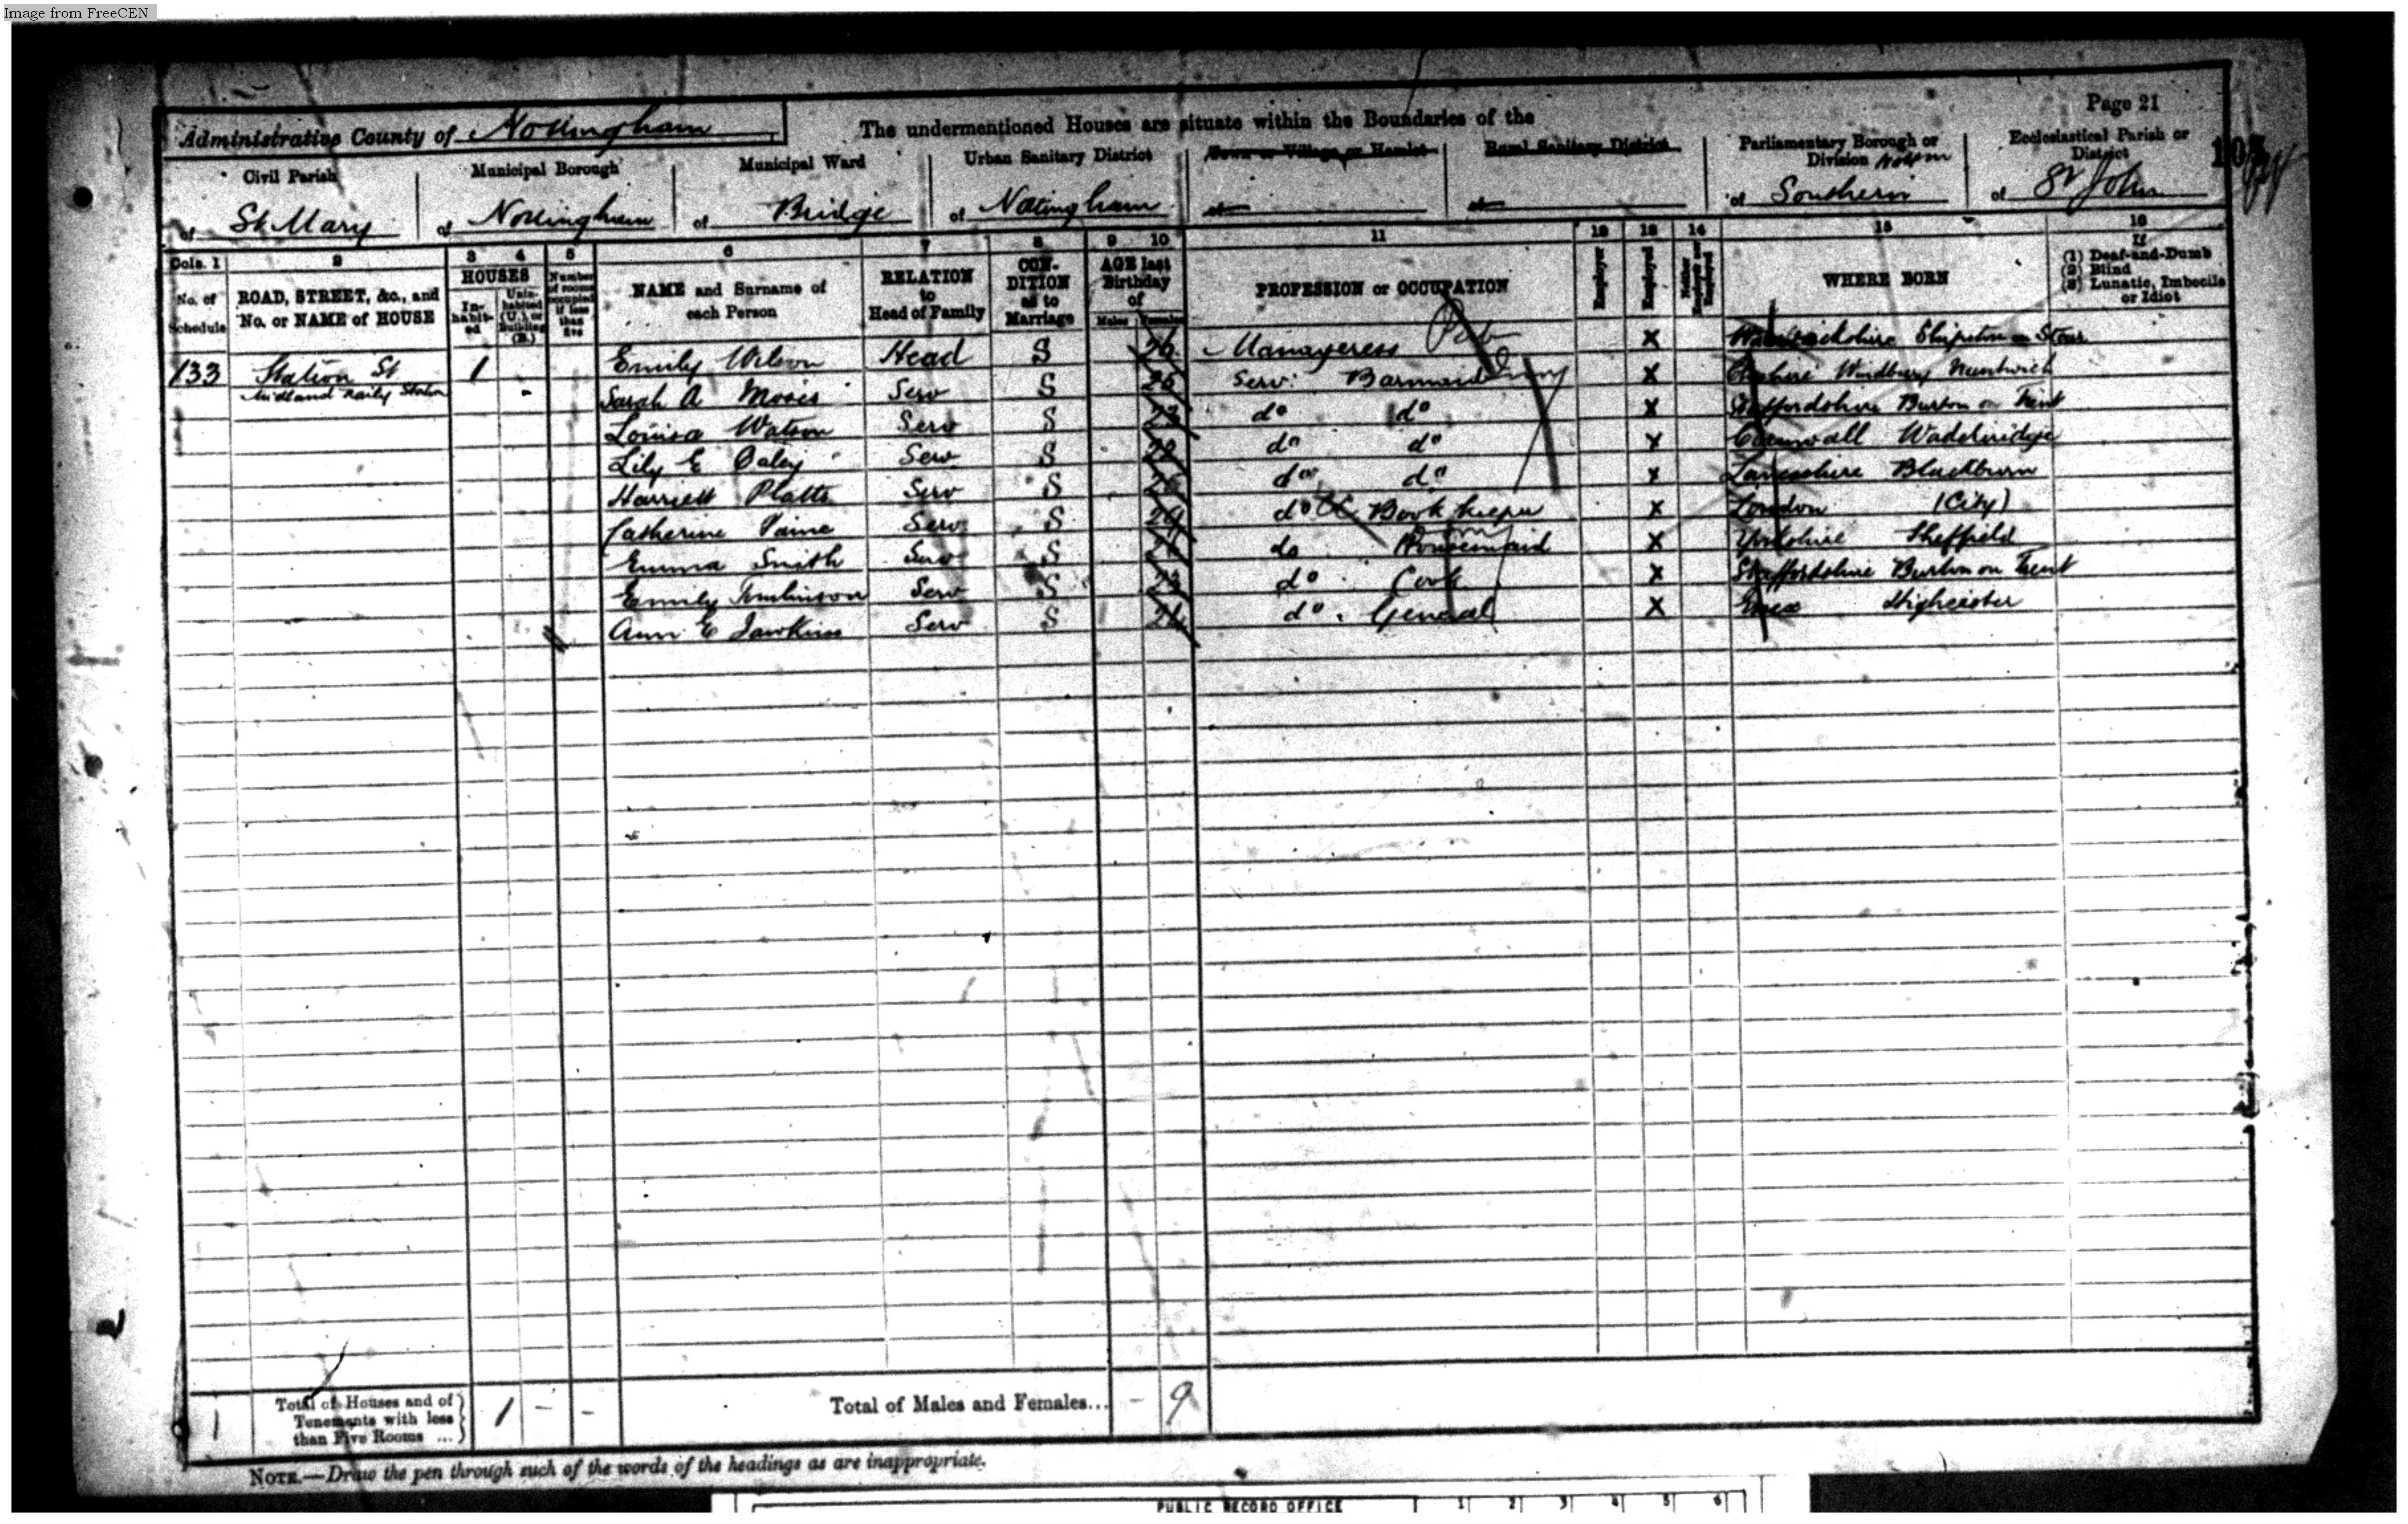 Image from FreeCEN
Page 21
Administrative County of Nottingham
The undermentioned Houses are situate within the Boundaries of the
Civil Parish of St Mary
Municipal Borough of Nottingham
Municipal Ward of Bridge
Urban Sanitary District of Nottingham
Town or Village or Hamlet of
Rural Sanitary District of
Parliamentary Borough or Division of Southern
Ecclesiastical Parish or District of St John
Cols. 1 2 3 4 5 6 7 8 9 10 11 12 13 14 15 16
No. of Schedule
ROAD, STREET, &c., and No. or NAME of HOUSE
HOUSES
In-habit-ed
Unin-habited (U.), or Building (B.)
Number of rooms occupied if less than five
NAME and Surname of each Person
RELATION to Head of Family
CON-DITION as to Marriage
AGE last Birthday of
Males Females
PROFESSION or OCCUPATION
Employer
Employed
Neither Employer nor Employed
WHERE BORN
If
(1) Deaf-and-Dumb
(2) Blind
(3) Lunatic, Imbecile or Idiot
133 Station St 1 Emily Wilson Head S 26 Manageress X Warwickshire Shipston on Stour
Midland Raily Station Sarah A Serv S Serv: Barmaid X Cheshire Nantwich
Louisa Watson Serv S do do X Staffordshire Burton on Trent
Lily E Serv S do do X Cornwall Wadebridge
Harriett Platts Serv S do do X Lancashire Blackburn
Catherine Paine Serv S do Book keeper X London (City)
Emma Smith Serv S do Housemaid X Yorkshire Sheffield
Emily Tomlinson Serv S 23 do Cook X Staffordshire Burton on Trent
Ann E Serv S do General X Essex
1 Total of Houses and of Tenements with less than Five Rooms ... 1 - - Total of Males and Females... - 9
NOTE.—Draw the pen through such of the words of the headings as are inappropriate.
PUBLIC RECORD OFFICE 1 2 3 4 5 6